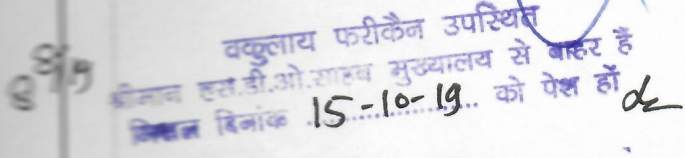 वकुलाय फरीकैन उपस्थित
श्रीमान एस.डी.ओ.साहब मुख्यालय से बाहर हैं
मिसल दिनांक 15-10-19 को पेश हों